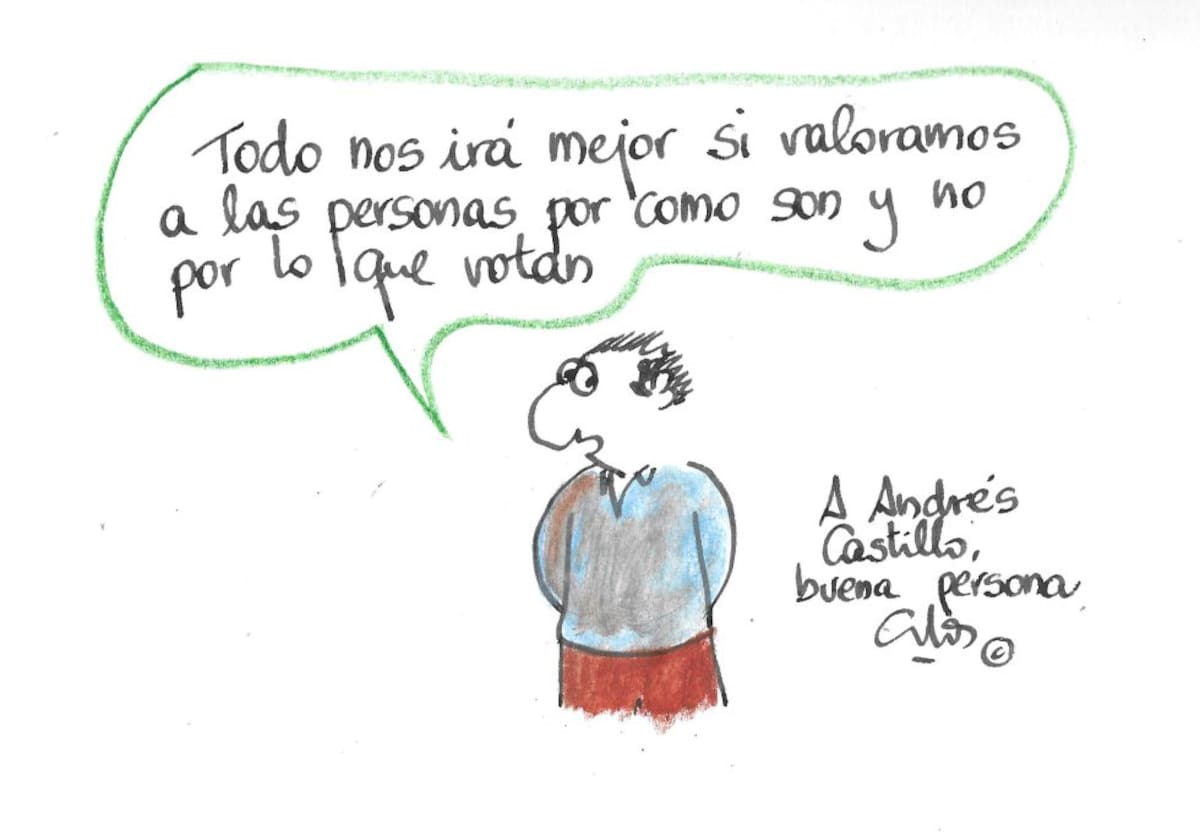 Todo nos irá mejor si valoramos
a las personas por como son y no
por lo que votan
A Andrés
Castillo,
buena persona
©